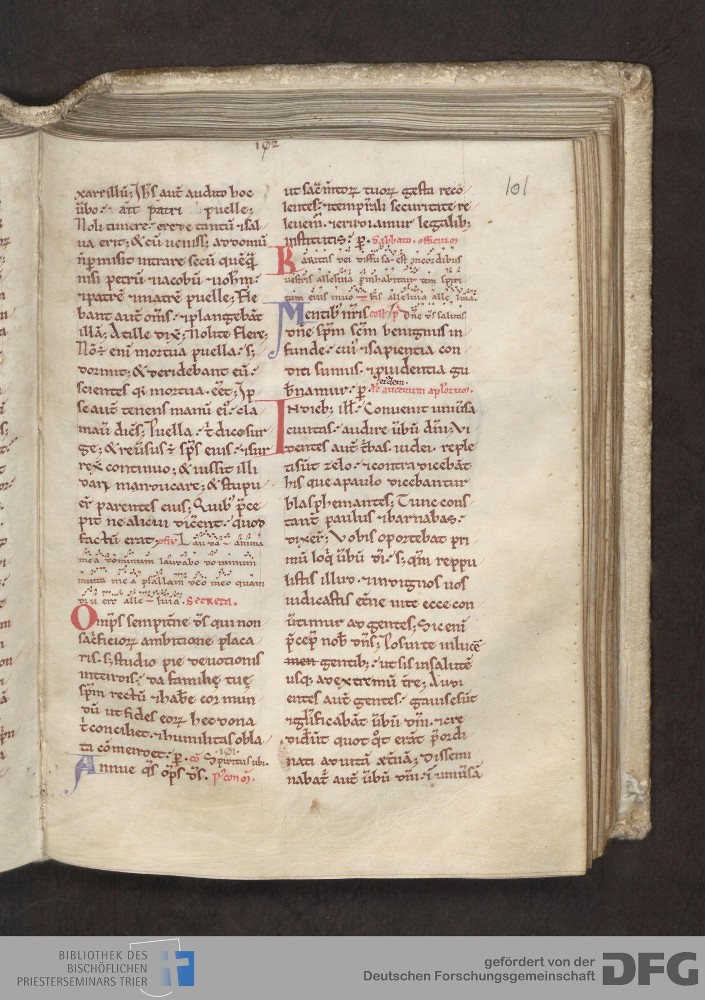 102
101
xarsillū; Ihs̄ aut̄ audito hoc
ūbo· ait patri puelle;
Noli timere· crede tantū ⁊ sal
ua erit; & cū veniss; ad domū
n̄ pmisit intrare secū quēq̄
nisi petrū iacobū ⁊ ioh̄m·
⁊ patrē ⁊ matrē puelle; Fle
bant aut̄ om̄s· ⁊ plangebāt
illā; At ille dix̄; Nolite flere;
Nō ē enī mortua puella· s;
dormit; & deridebant eū·
scientes q̄ mortua· eēt; Ip
se aut̄ tenens manū ei᷒· cla
mau̅ dic̄s; Puella· t̄ dico sur
ge; & reūsus ē sp̄s eius· ⁊ sur
rex̄ continuo; & iussit illi
dari manducare; & stupu
er̄ parentes eius; Quib᷒ p̄ce
pit ne alicui dic̄ent· quod
factū erat; off̄ Lauda anima
mea dominum laudabo dominum
in uita mea psallam deo meo quam
diu ero alleluia. Secreta.
Omp̄s sempit̄ne ds̄ qui non
sac̄ficiorꝝ ambitione placa
ris· s; studio pie deuotionis
intendis· da familię tuę
sp̄m rectū ⁊ habē cor mun
dū ut fides eorꝝ hec dona
t̄ conciliet· ⁊ humilitas obla
ta cōmendet· p̱· cō Spiritus ubi.
Annue qs̄ op̄s ds̄. p᷒ con
ut sac̄mtorꝝ tuorꝝ gesta reco
lentes· ⁊ temp̄ali securitate re
leuem̄· ⁊ erudiamur legalib;
institutis· p̱· Sabbato. officium
Karitas dei diffusa est in cordibus
uestris alleluia p̱ inhabitantem spiri
tum eius in uo bis alleluia alleluia.
Mentib᷒ nr̄is coll᷒ p̄s Dn̄e ds̄ salutis
dn̄e sp̄m sc̄m benignus in
funde· cui᷒ ⁊ sapientia con
diti sumus· ⁊ p̱uidentia gu
b̄namur· p̱· eadem
Lc̄ actuum aplorum.
In dieb; ill̄· Conuenit uniūsa
ciuitas· audire ūbū dn̄i; Vi
dentes aut̄ t̄bas· iudei· reple
ti sūt zelo· ⁊ contradicebāt
his que a paulo dicebantur
blasphemantes; Tunc cons
tant̄ paulus ⁊ barnabas·
dixer̄; Vobis oportebat pri
mū loq̄ ūbū di̅· s; qm̄ reppu
listis illud· ⁊ indignos uos
iudicastis et̄ne uite ecce con
ūtimur ad gentes; Sic enī
p̄cep̄ nob̄ dn̄s; Posui te in lucē
men gentib;· ut sis in salutē
usq; ad extremū t̄re; Audi
entes aut̄ gentes· gauise sūt
⁊ gl̄ificabāt ūbū dn̄i· ⁊ cre
didūt quot q̄t erāt p̄ordi
nati ad uitā et̄nā; Dissemi
nabat̄ aut̄ ūbū dn̄i· ī uniūsā
BIBLIOTHEK DES
BISCHÖFLICHEN
PRIESTERSEMINARS TRIER
gefördert von der
Deutschen Forschungsgemeinschaft
DFG